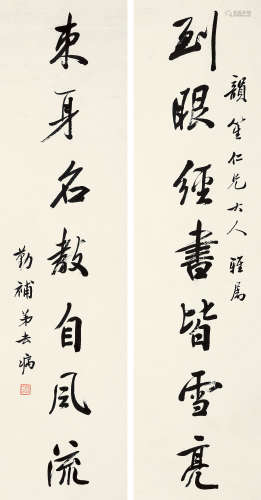 到眼經書皆雪亮
韻笙仁兄大人 雅屬
束身名教自風流
勤補弟去病